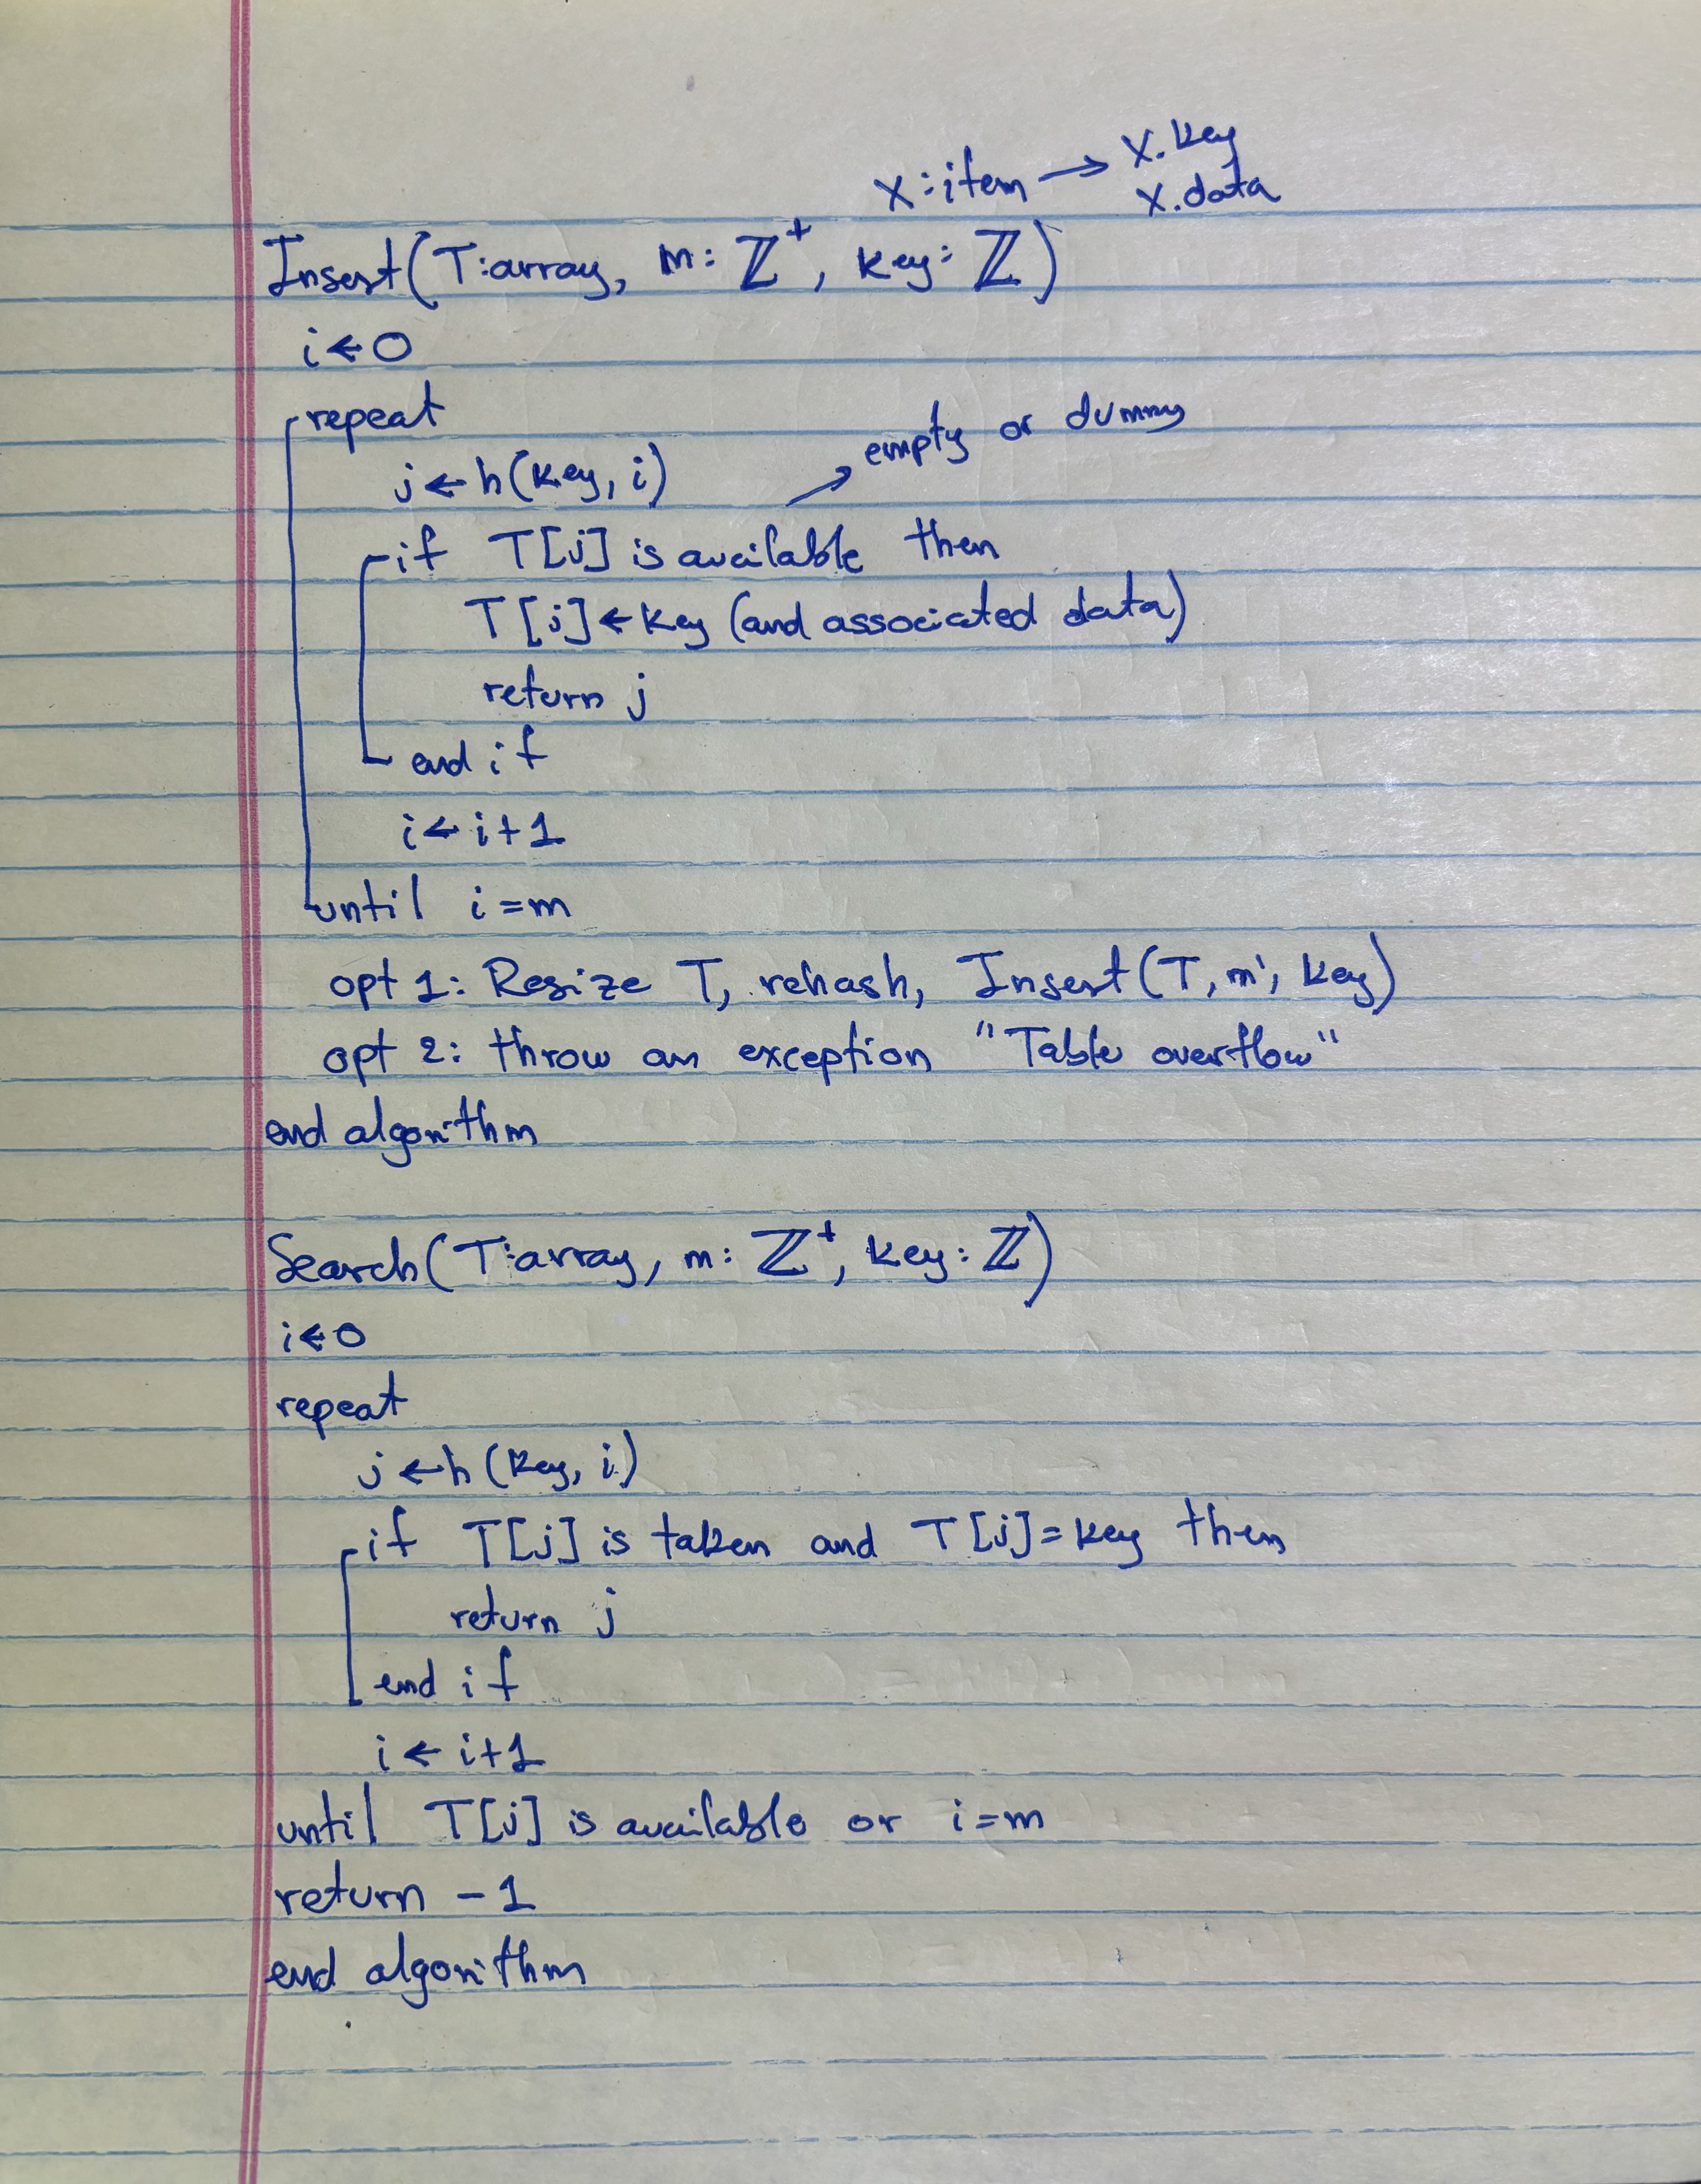 x:item → x.key
x.data
Insert(T:array, m: ℤ⁺, key: ℤ)
i ← 0
repeat
j ← h(key, i)
→ empty or dummy
if T[j] is available then
T[j] ← key (and associated data)
return j
end if
i ← i+1
until i=m
opt 1: Resize T, rehash, Insert(T, m', key)
opt 2: throw an exception "Table overflow"
end algorithm
Search(T:array, m: ℤ⁺, key: ℤ)
i ← 0
repeat
j ← h(key, i)
if T[j] is taken and T[j]=key then
return j
end if
i ← i+1
until T[j] is available or i=m
return -1
end algorithm